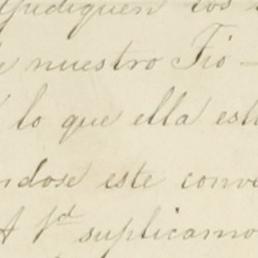 Yudiquen los
nuestro Tio —
lo que ella est
ndose este conve
A Vd suplicamo